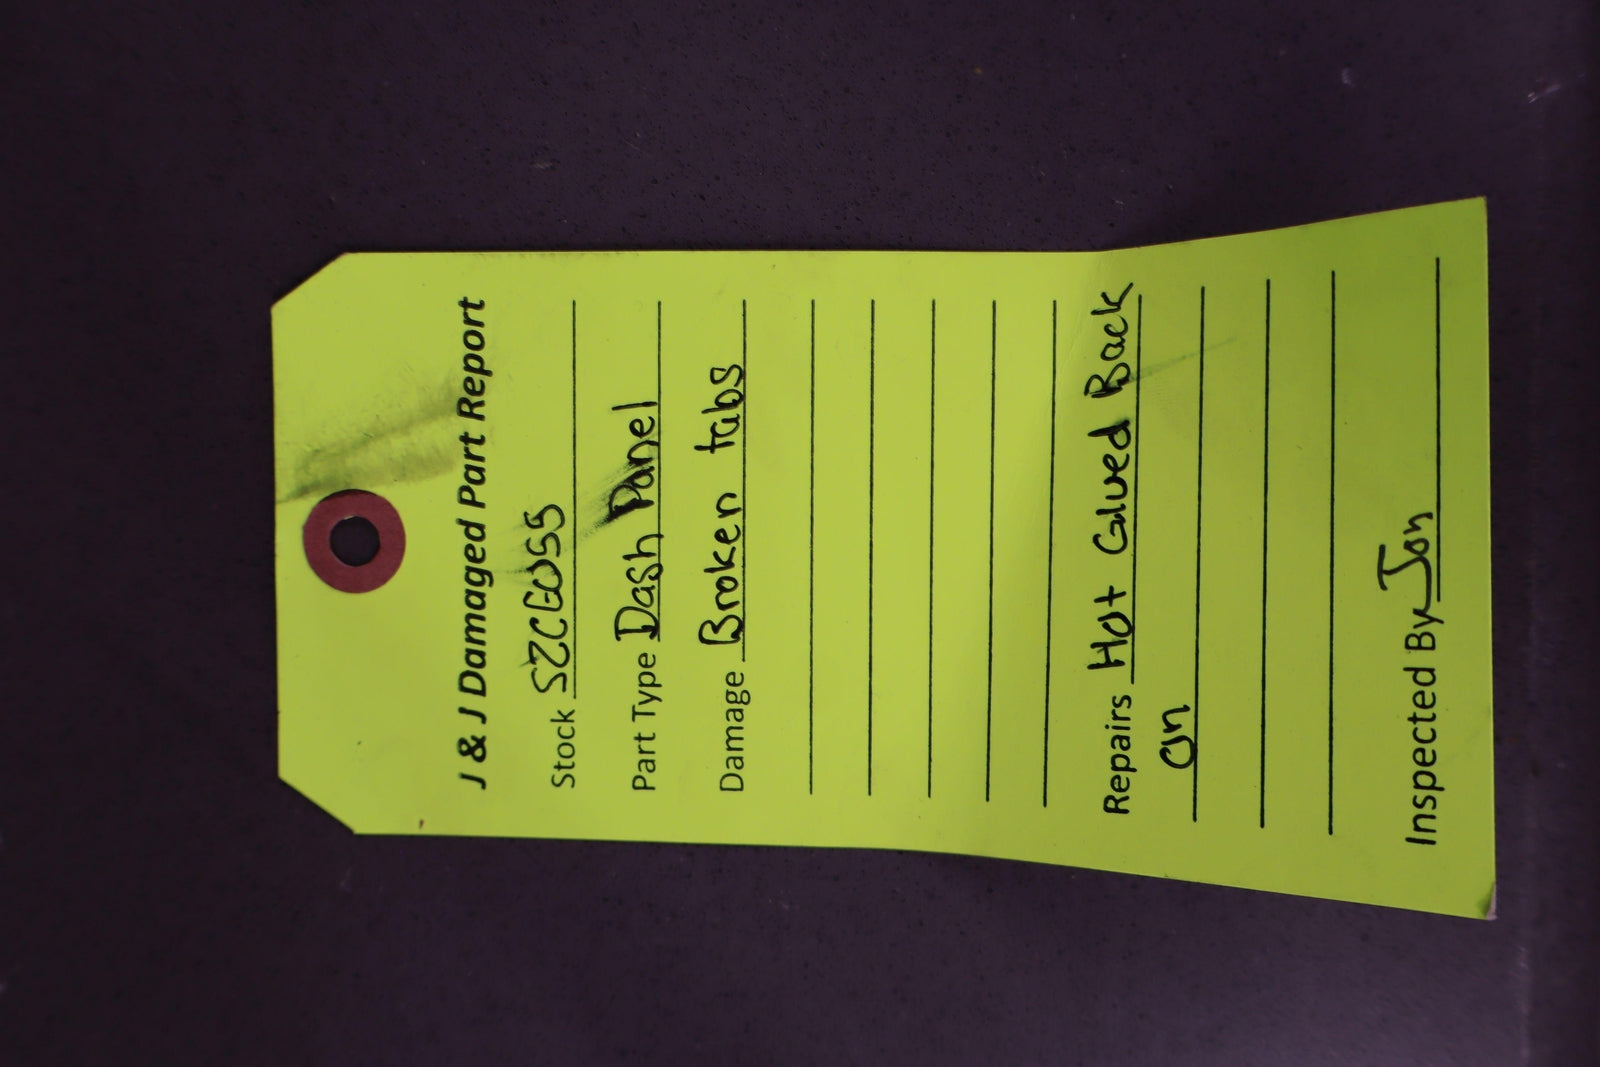 J & J Damaged Part Report
Stock SZCEW55
Part Type Dash Panel
Damage Broken tabs
Repairs Hot Glued Back
on
Inspected By Jon